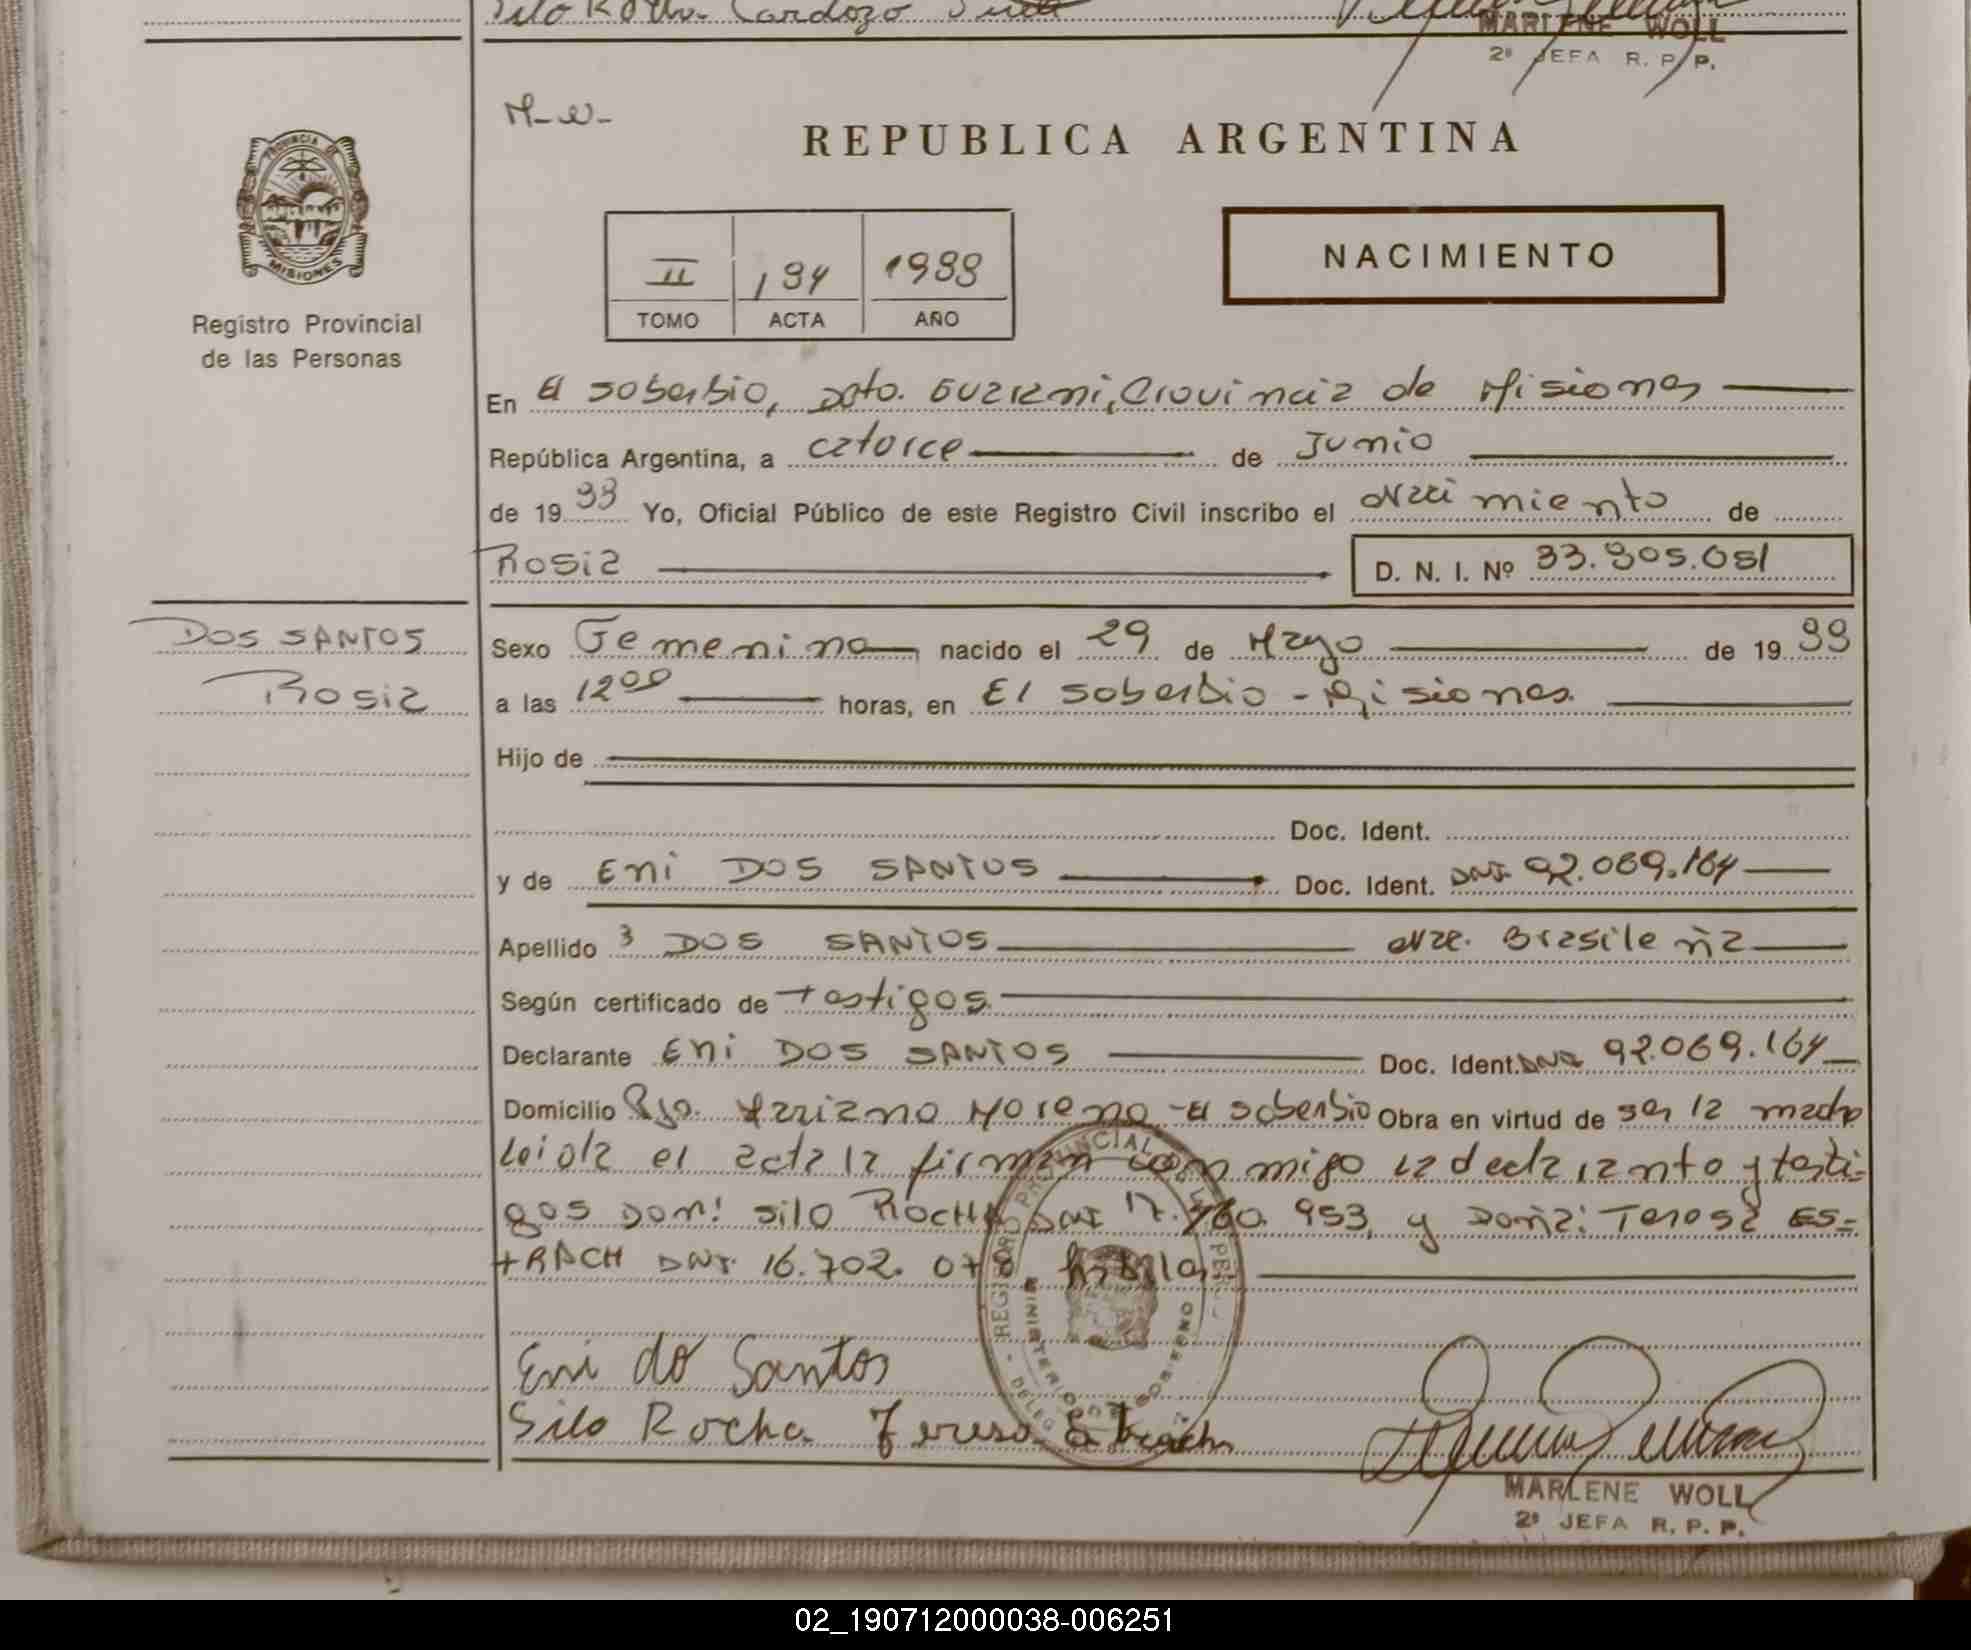 Silo Rocha Cardozo
MARLENE WOLL
2ª JEFA R. P. P.
M-W-
REPUBLICA ARGENTINA
PROVINCIA DE
MISIONES
Registro Provincial
de las Personas
II 194
TOMO ACTA AÑO
NACIMIENTO
En El Soberbio, Dpto. Guarani, Provincia de Misiones
República Argentina, a catorce de Junio
de 19 Yo, Oficial Público de este Registro Civil inscribo el Nacimiento de
Rosia D. N. I. Nº
DOS SANTOS
Rosia
Sexo Femenino nacido el 29 de Mayo de 19
a las 12 00 horas, en El Soberbio - Misiones.
Hijo de
Doc. Ident.
y de Eni DOS SANTOS Doc. Ident. DNI. 92.069.164
Apellido DOS SANTOS Nac. Brasileña
Según certificado de testigos.
Declarante Eni DOS SANTOS Doc. Ident. DNI 92.069.164
Domicilio Pje. Mariano Moreno - El Soberbio Obra en virtud de ser la madre
Leida el acta la firman conmigo la declarante y testi-
gos Don: Silo ROCHA DNI 17.760.953, y Doña: Teresa ES=
TRACH DNI. 16.702.078
Eni do Santos
Silo Rocha Teresa Estrach
MARLENE WOLL
2ª JEFA R. P. P.
02_190712000038-006251